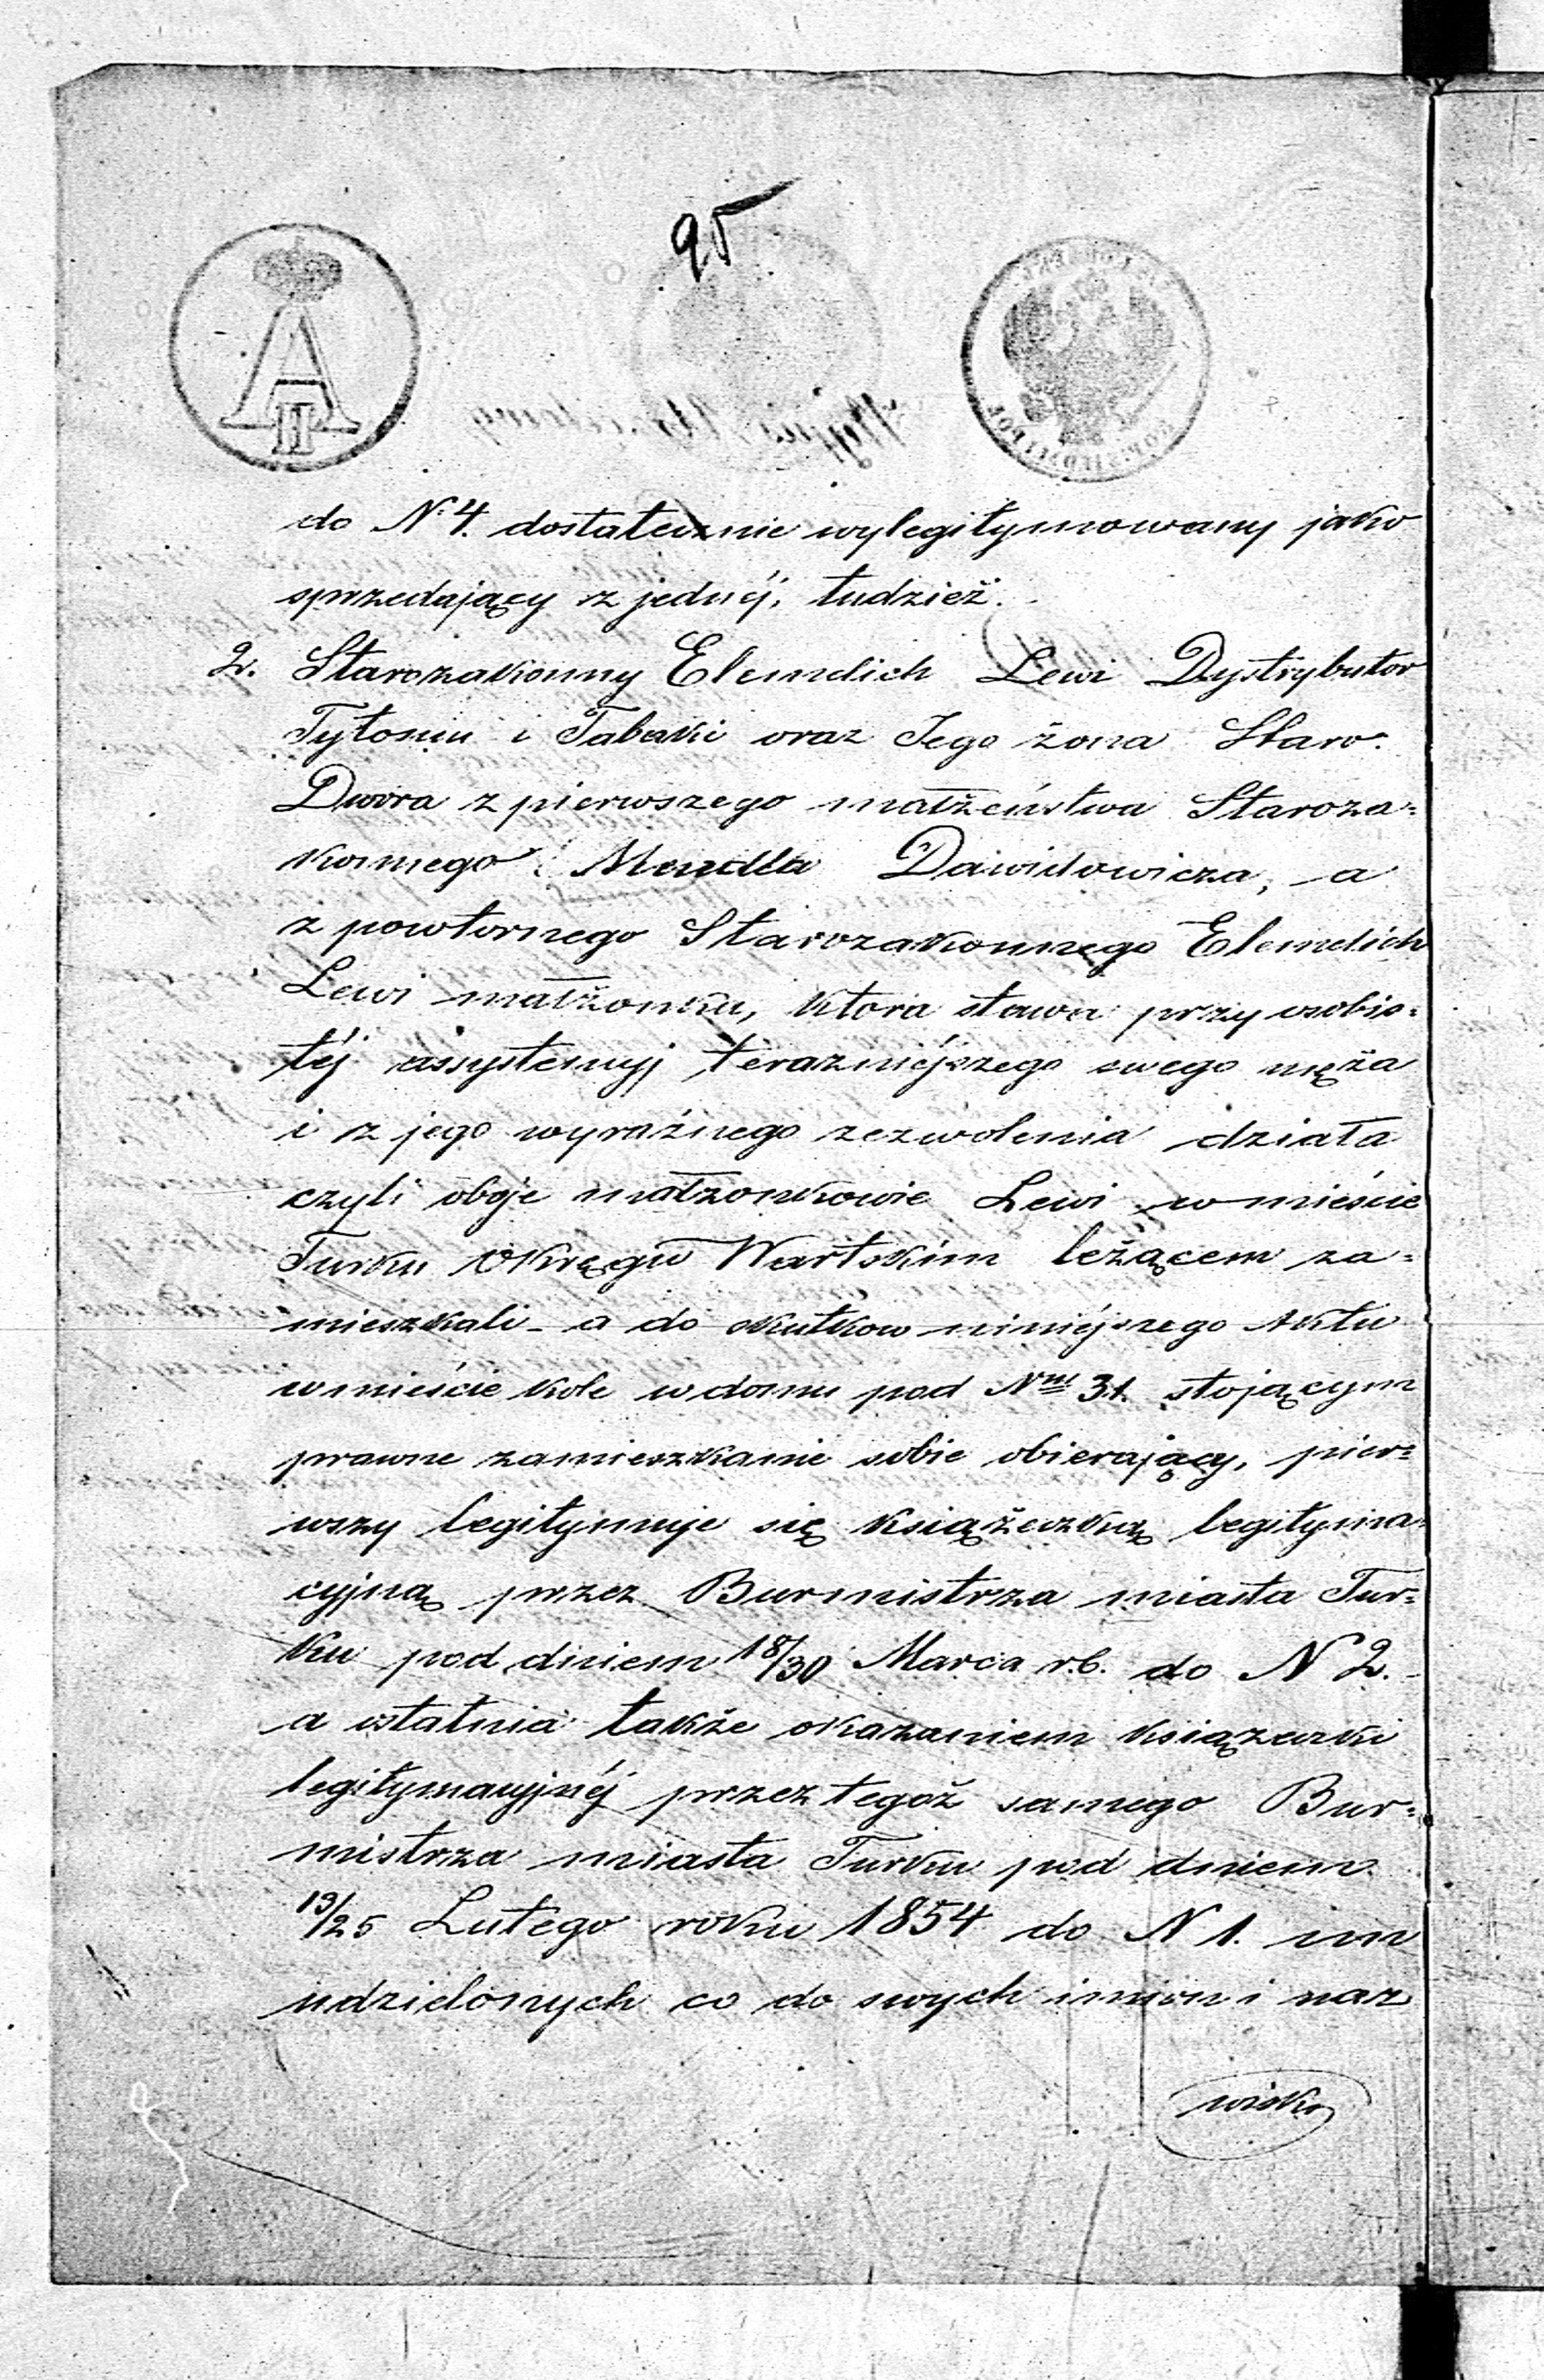 95
A
II
do N. 4. dostatecznie wylegitymowany jako
sprzedający z jednéj, tudzież.
2. Starozakonny Elemelich Lewi Dystrybutor
Tytoniu i Tabaki oraz Jego żona Staro.
Dwora z pierwszego małżeństwa Staroza=
konnego Mendla Dawidowicza, a
z powtornego Starozakonnego Elemelich
Lewi małżonka, ktora stawa przy osobis=
téj assystencyj terazniéjszego swego męża
i z jego wyraźnego zezwolenia działa
czyli oboje małzonkowie Lewi w mieście
Turku Okręgu Wartskim leżącem za=
mieszkali - a do skutkow niniéjszego Aktu
w mieście Kole w domu pod Nm 31. stojącym
prawne zamieszkanie sobie obierający, pier=
wszy legitymuje się książeczką legityma=
cyjną przez Burmistrza miasta Tur=
ku pod dniem 18/30 Marca r.b. do N 2.
a ostatnia także okazaniem książeczki
legitymacyjnéj przez tegoż samego Bur=
mistrza miasta Turku pod dniem
13/25 Lutego roku 1854 do N 1. im
udzielonych co do swych imion i naz
wisko